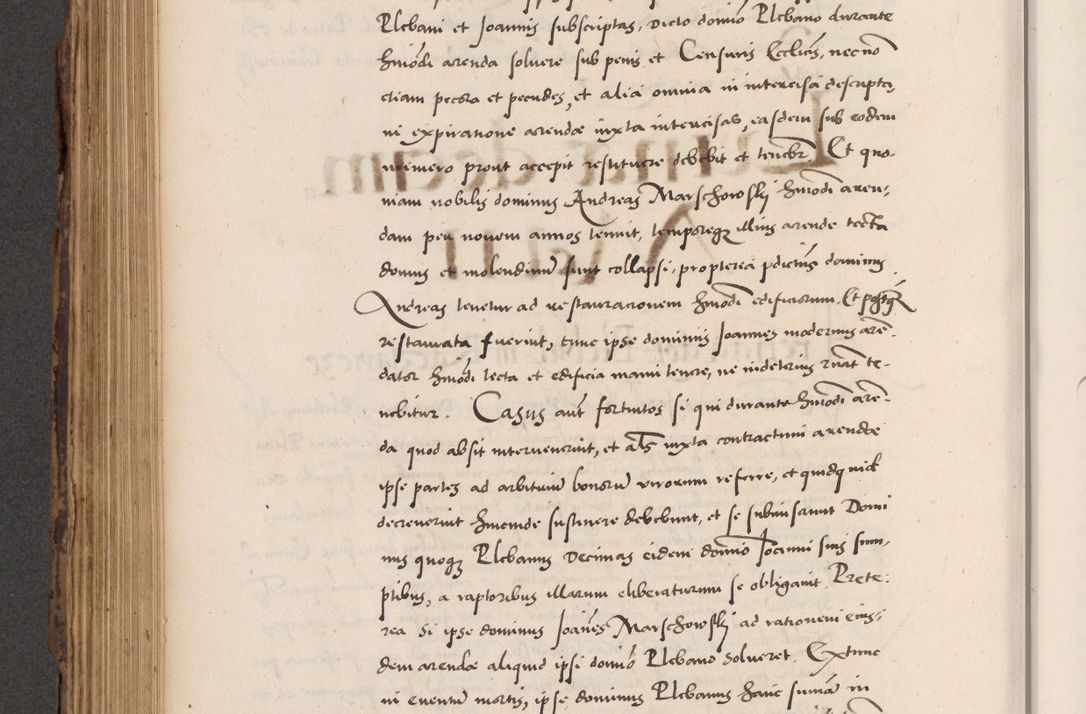 Plebani et Joannis subscriptas, Dicto domio Plebano durante
hmodi arenda solvere sub penis et Censuris Ecclicis, necno
etiam pecora et pecudes, et alia omnia in intercisa descripta,
in expiratione arendae iuxta intercisas, easdem sub eodem
numero prout accepit restituere debebit et tenebr, Et quo-
niam nobilis dominus Andreas Marschowskj hmodi aren-
dam per novem annos tenuit, temporeqz illius arende tecta
domus et molendinum sunt collapsi, propterea pdictus dominus
Andreas tenetur ad restaurationem hmodi edificiorum. Et postqz
restaurata fuerint, tunc ipse dominus Joannes modernus are-
dator hmodi tecta et edificia manu tenere, ne in deterius ruat te-
nebitur. Casus aut fortuitos si qui durante hmodi are-
da quod absit intervenerint, et als iuxta contractum arendae
ipse partes ad arbitrium bonorum virorum referre, et quidquid
decreverint hincinde sustinere debebunt, et se submiserunt Domi
nus quoqz Plebanus Decimas eidem domio Joanni suis sum-
ptibus, a raptoribus illarum eliberaturum se obligavit Prete-
rea si ipse dominus Joanes Marschowskj ad rationem eius-
dem arendae aliquid ipsi domio Plebano solveret, Extunc
in eventu mortis, ipse dominus Plebanus hanc sumam in